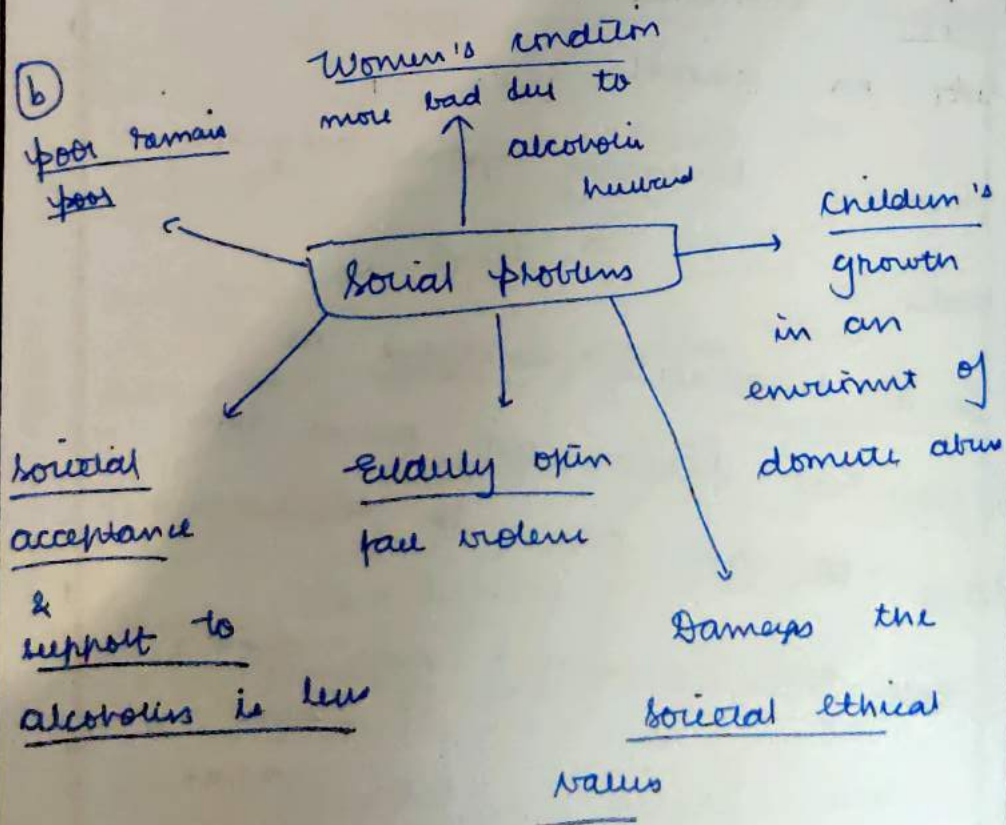 b
Women's condition
more bad due to
alcoholic
husband
poor remais
poor
Social problems
Children's
growth
in an
environmt of
domestic abuse
Societal
acceptance
&
support to
alcoholics is less
Elderly often
face violence
Damages the
societal ethical
values